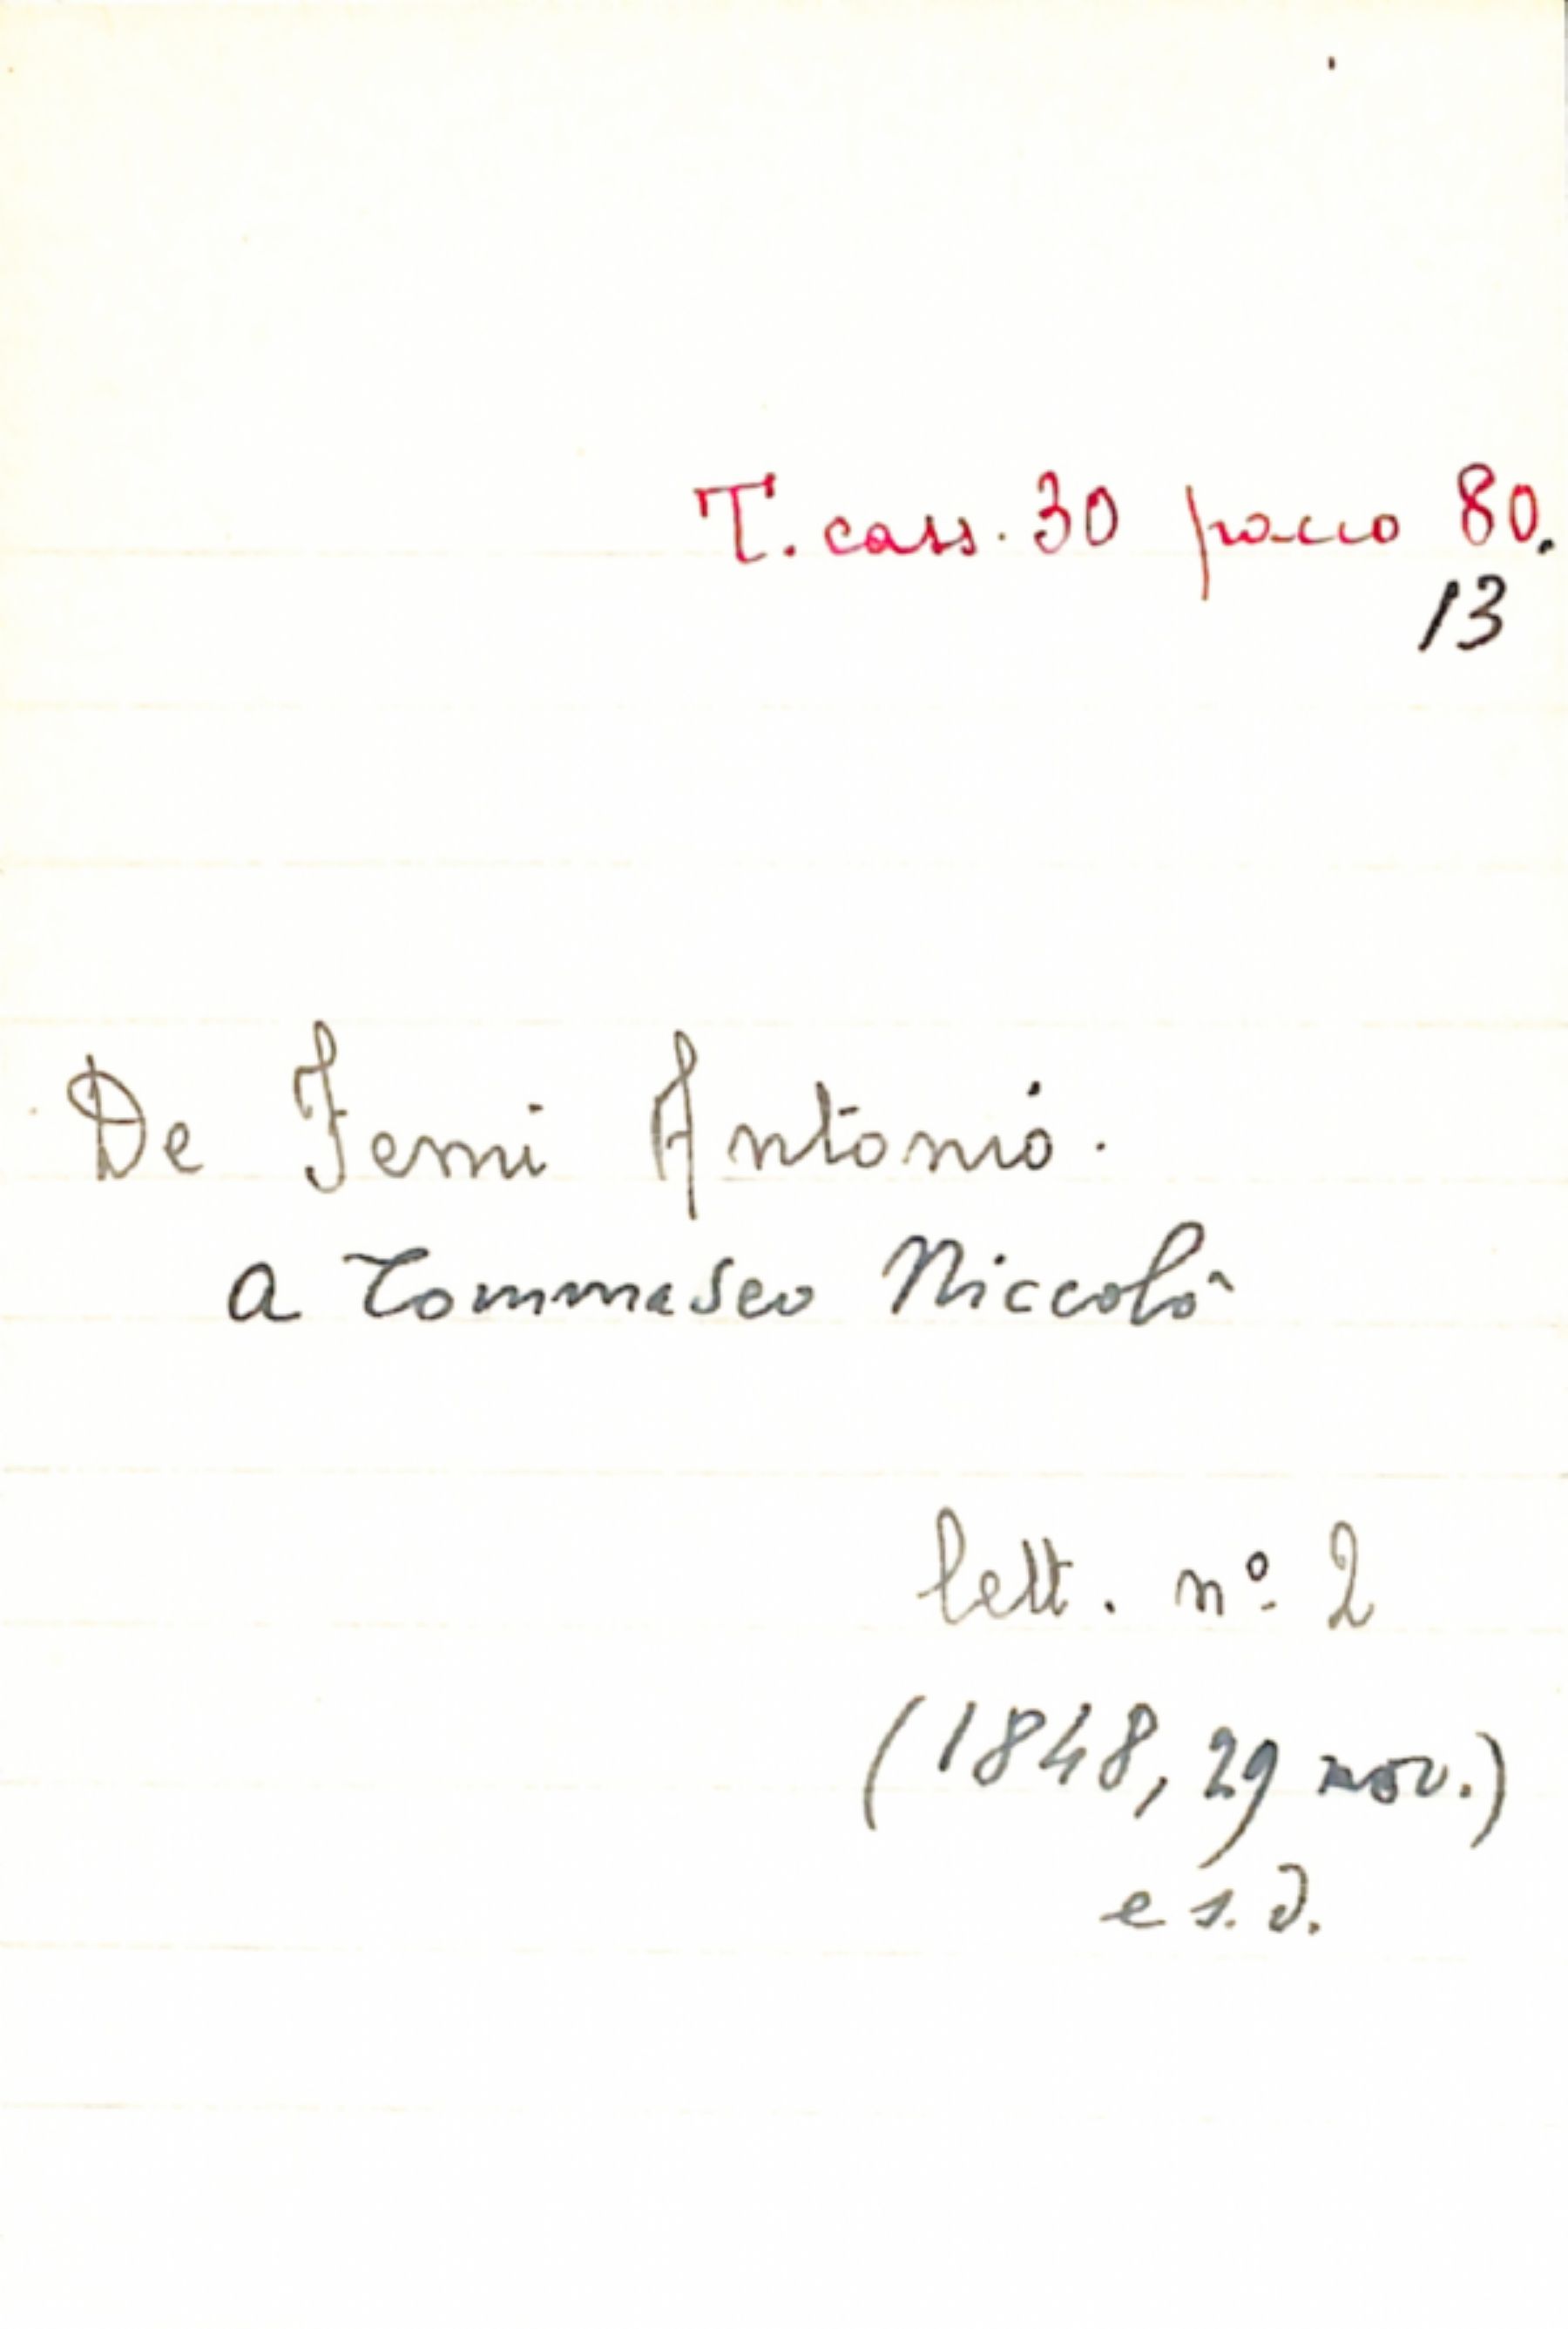 T. cass. 30 pacco 80.
13
De Antonio.
a Tommaseo Niccolò
lett. nº 2
(1848, 29 nov.)
e s. d.